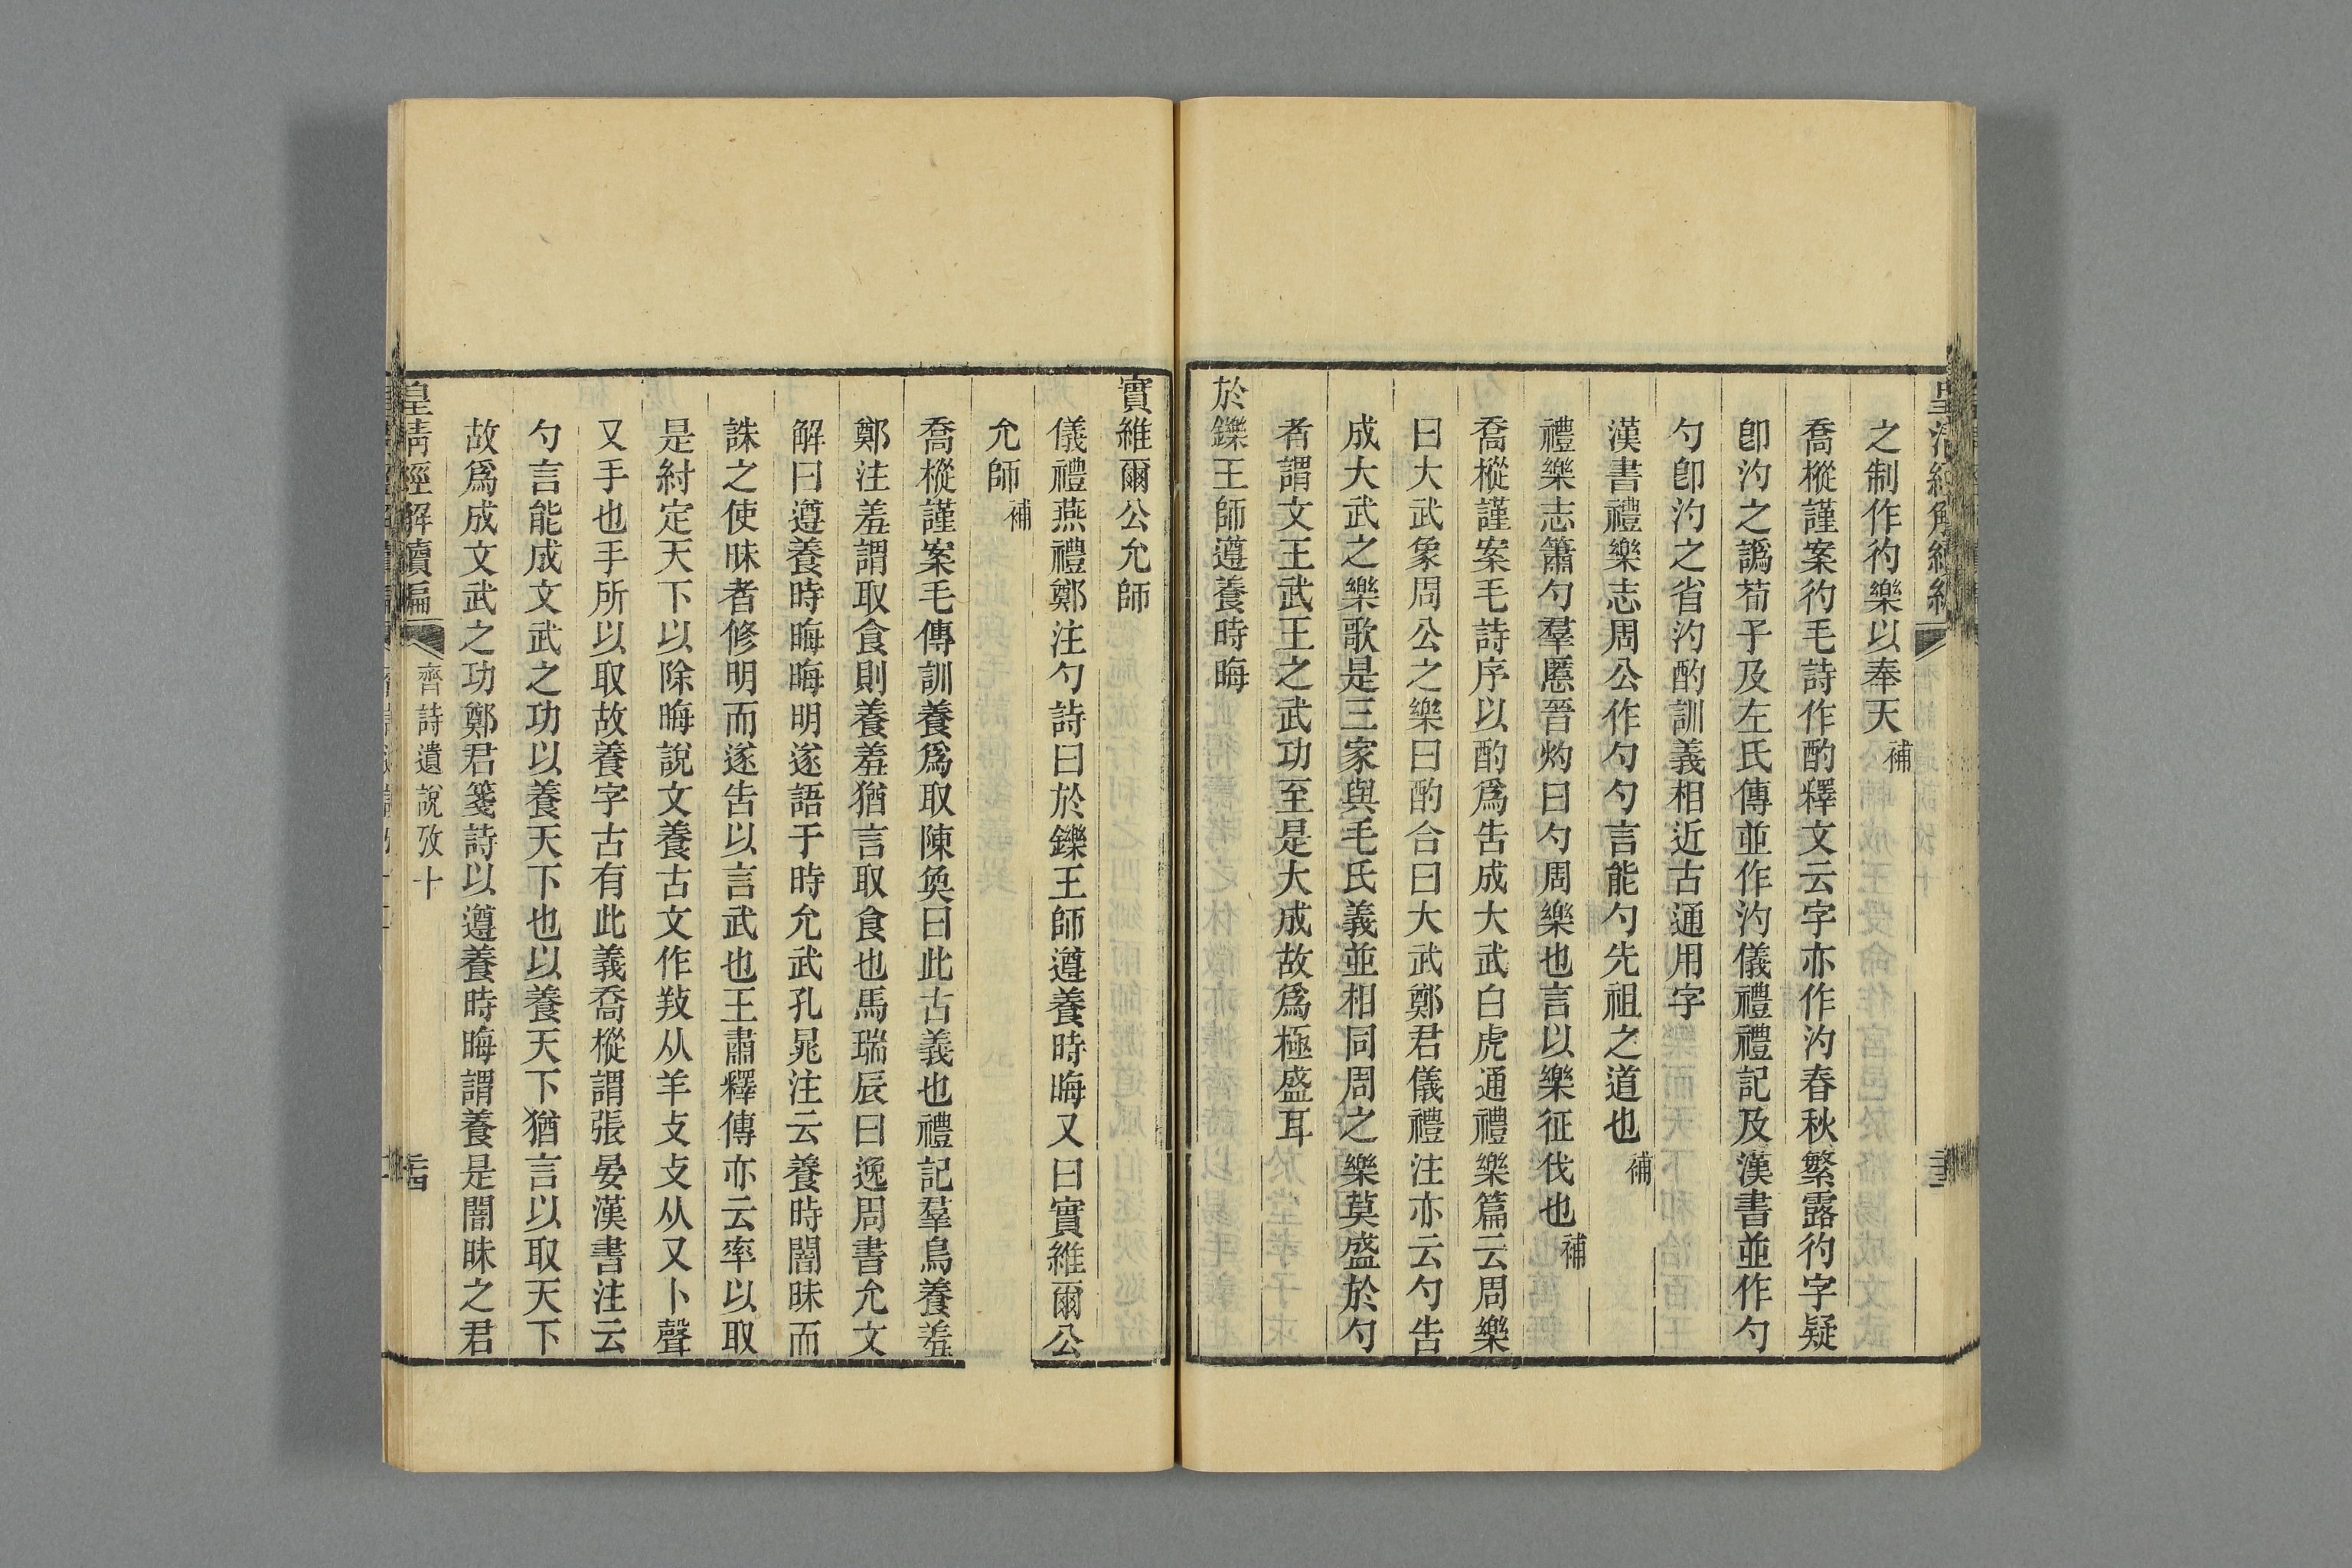 之制作汋樂以奉天補
喬樅謹案彴毛詩作酌釋文云字亦作汋春秋繁露彴字疑
卽汋之譌荀子及左氏傳並作汋儀禮禮記及漢書並作勺
勺卽汋之省汋酌訓義相近古通用字
漢書禮樂志周公作勺勺言能勺先祖之道也補
禮樂志簫勺羣慝晉灼曰勺周樂也言以樂征伐也補
喬樅謹案毛詩序以酌爲告成大武白虎通禮樂篇云周樂
曰大武象周公之樂曰酌合曰大武鄭君儀禮注亦云勺告
成大武之樂歌是三家與毛氏義並相同周之樂莫盛於勺
者謂文王武王之武功至是大成故爲極盛耳
於鑠王師遵養時晦
實維爾公允師
儀禮燕禮鄭注勺詩曰於鑠王師遵養時晦又曰實維爾公
允師補
喬樅謹案毛傳訓養爲取陳奐曰此古義也禮記羣鳥養羞
鄭注羞謂取食則養羞猶言取食也馬瑞辰曰逸周書允文
解曰遵養時晦晦明遂語于時允武孔晁注云養時闇昧而
誅之使昧者修明而遂告以言武也王肅釋傳亦云率以取
是紂定天下以除晦說文養古文作羖从羊攴攴从又卜聲
又手也手所以取故養字古有此義喬樅謂張晏漢書注云
勺言能成文武之功以養天下也以養天下猶言以取天下
故爲成文武之功鄭君箋詩以遵養時晦謂養是闇昧之君
皇清經解續編 齊詩遺說攷十 三十四